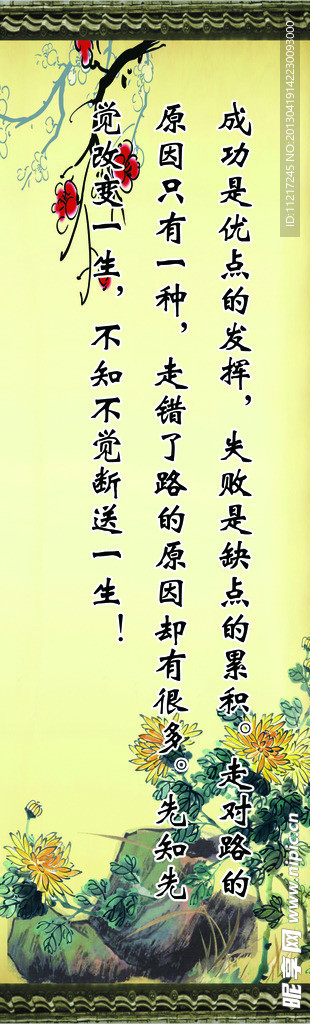 成功是优点的发挥，失败是缺点的累积。走对路的
原因只有一种，走错了路的原因却有很多。先知先
觉改变一生，不知不觉断送一生！
ID:11217245 NO:20130419142230093000
昵享网 www.nipic.cn